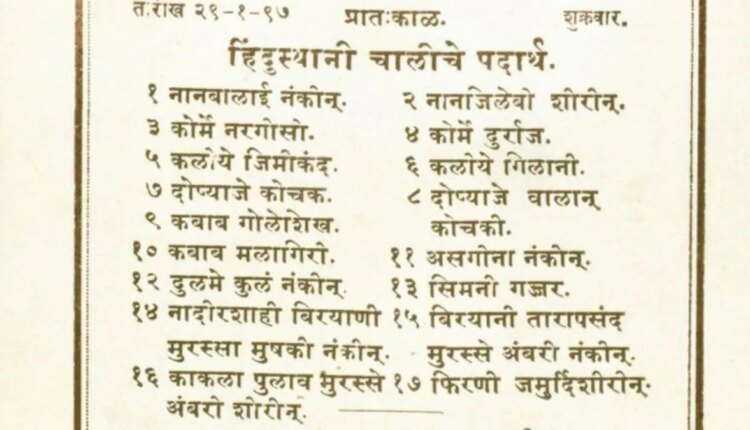 त.राख २९-१-९७ प्रातःकाळ. शुक्रवार.
हिंदुस्थानी चालीचे पदार्थ.
१ नानबालाई नंकीन्. २ नानजिलेबी शीरीन्.
३ कोर्मे नरगीसी. ४ कोर्मे दुर्राज.
५ कलीये जिमीकंद. ६ कलीये गिलानी.
७ दोप्याजे कोचक. ८ दोप्याजे वालान्
९ कबाब गोलेशेख. कोचकी.
१० कबाब मलागिरी. ११ असगीना नंकीन्.
१२ दुलमे कुलं नंकीन्. १३ सिमनी गज्जर.
१४ नादीरशाही बिरयाणी १५ बिरयानी तारापसंद
मुरस्सा मुषकी नंकीन्. मुरस्से अंबरी नंकीन्.
१६ काकला पुलाव मुरस्से १७ फिरणी जमुर्दिशीरीन्.
अंबरी शीरीन्.